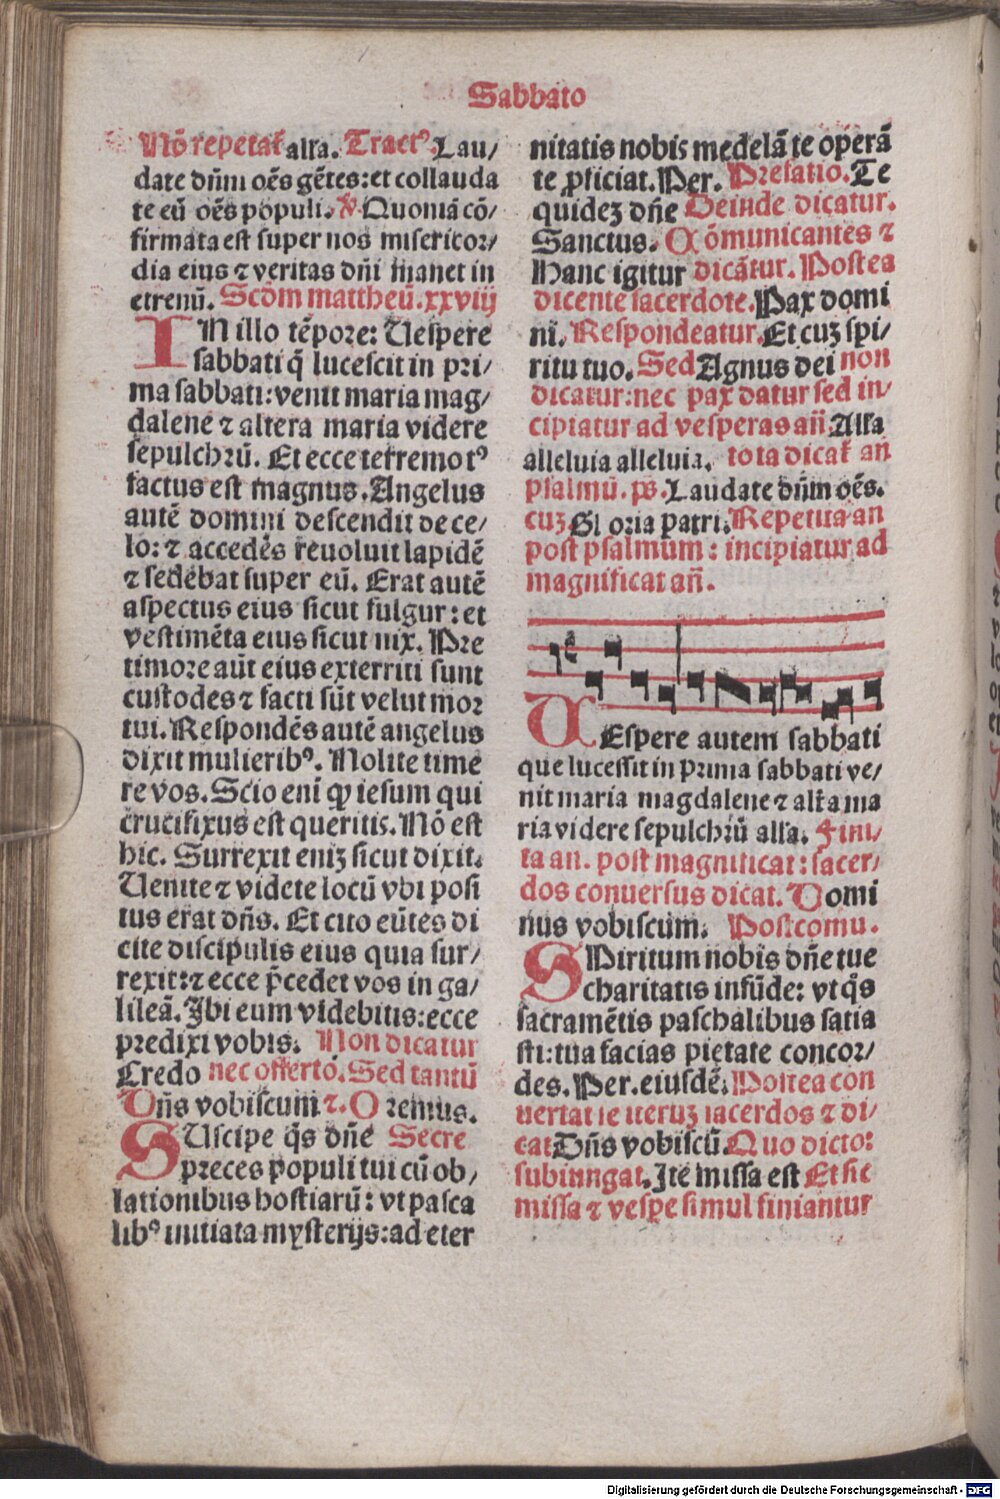 Sabbato
Nō repetat᷑ alľa. Tract⁹. Lau/
date dn̄m oēs gētes: et collauda
te eū oēs populi. ℣. Quoniā cō/
firmata est super nos misericor/
dia eius ⁊ veritas dn̄i manet in
eternū. Scd̄m mattheū. xxviij
IN illo tēpore: Uespere
sabbati q̄ lucescit in pri/
ma sabbati: venit maria mag/
dalene ⁊ altera maria videre
sepulchrū. Et ecce terremot⁹
factus est magnus. Angelus
autē domini descendit de ce/
lo: ⁊ accedēs reuoluit lapidē
⁊ sedebat super eū. Erat autē
aspectus eius sicut fulgur: et
vestimēta eius sicut nix. Pre
timore aūt eius exterriti sunt
custodes ⁊ facti sūt velut mor
tui. Respondēs autē angelus
dixit mulierib⁹. Nolite time
re vos. Scio eni̅ ꝙ iesum qui
crucifixus est queritis. Nō est
hic. Surrexit eniꝫ sicut dixit.
Uenite ⁊ videte locū vbi posi
tus erat dn̄s. Et cito eūtes di
cite discipulis eius quia sur/
rexit: ⁊ ecce p̄cedet vos in ga/
lileā. Ibi eum videbitis: ecce
predixi vobis. Non dicatur
Credo nec offerto. Sed tantū
Dn̄s vobiscum ⁊. Oremus.
SUscipe q̄s dn̄e Secre
preces populi tui cū ob/
lationibus hostiarū: vt pasca
lib⁹ initiata mysterijs: ad eter
nitatis nobis medelā te operā
te ꝓficiat. Per. Prefatio. Te
quidez dn̄e Deinde dicatur.
Sanctus. Cōmunicantes ⁊
Hanc igitur dicātur. Postea
dicente sacerdote. Pax domi
ni. Respondeatur. Et cuꝫ spi/
ritu tuo. Sed Agnus dei non
dicatur: nec pax datur sed in/
cipiatur ad vesperas an̄. Alľa
alleluia alleluia. tota dicat᷑ an̄
psalmū. ps. Laudate dn̄m oēs.
cuꝫ Gloria patri. Repetua an
post psalmum: incipiatur ad
magnificat an̄.
UEspere autem sabbati
que lucessit in prima sabbati ve/
nit maria magdalene ⁊ alťa ma
ria videre sepulchrū alľa. Fini/
ta an. post magnificat: sacer/
dos conuersus dicat. Domi
nus vobiscum. Postcomu.
SPiritum nobis dn̄e tue
charitatis infūde: vt q̄s
sacramētis paschalibus satia
sti: tua facias pietate concor/
des. Per. eiusdē. Postea con
uertat se iteruꝫ sacerdos ⁊ di/
cat Dn̄s vobiscū. Quo dicto:
subiungat. Ite missa est Et sic
missa ⁊ vespe simul finiantur
Digitalisierung gefördert durch die Deutsche Forschungsgemeinschaft - DFG